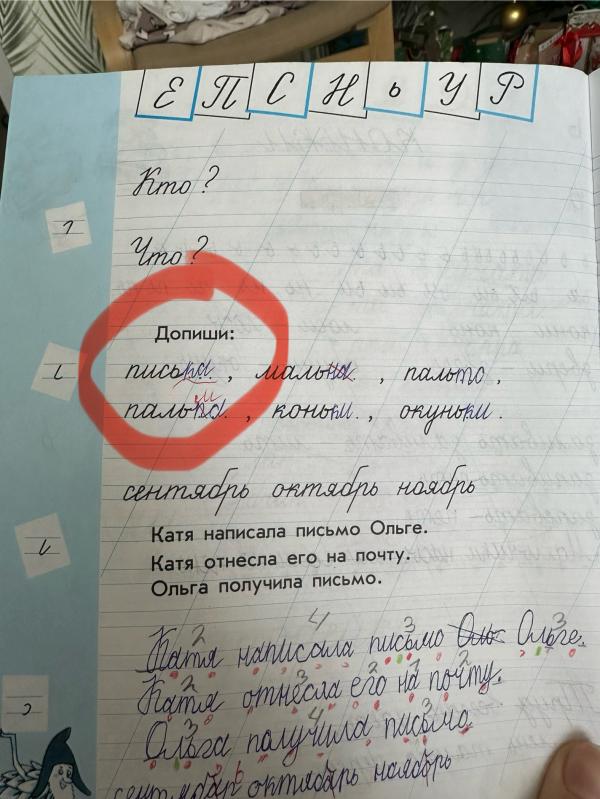 Е П С Н ь У Р
Кто ?
Что ?
Допиши:
писька , мальна. , пальто .
пальма. , коньки. , окуньки.
сентябрь октябрь ноябрь
Катя написала письмо Ольге.
Катя отнесла его на почту.
Ольга получила письмо.
2 4 3 3
Катя написала письмо Оль Ольге.
2 3 2 1 2
Катя отнесла его на почту.
3 4 3
Ольга получила письмо.
сентябрь октябрь ноябрь